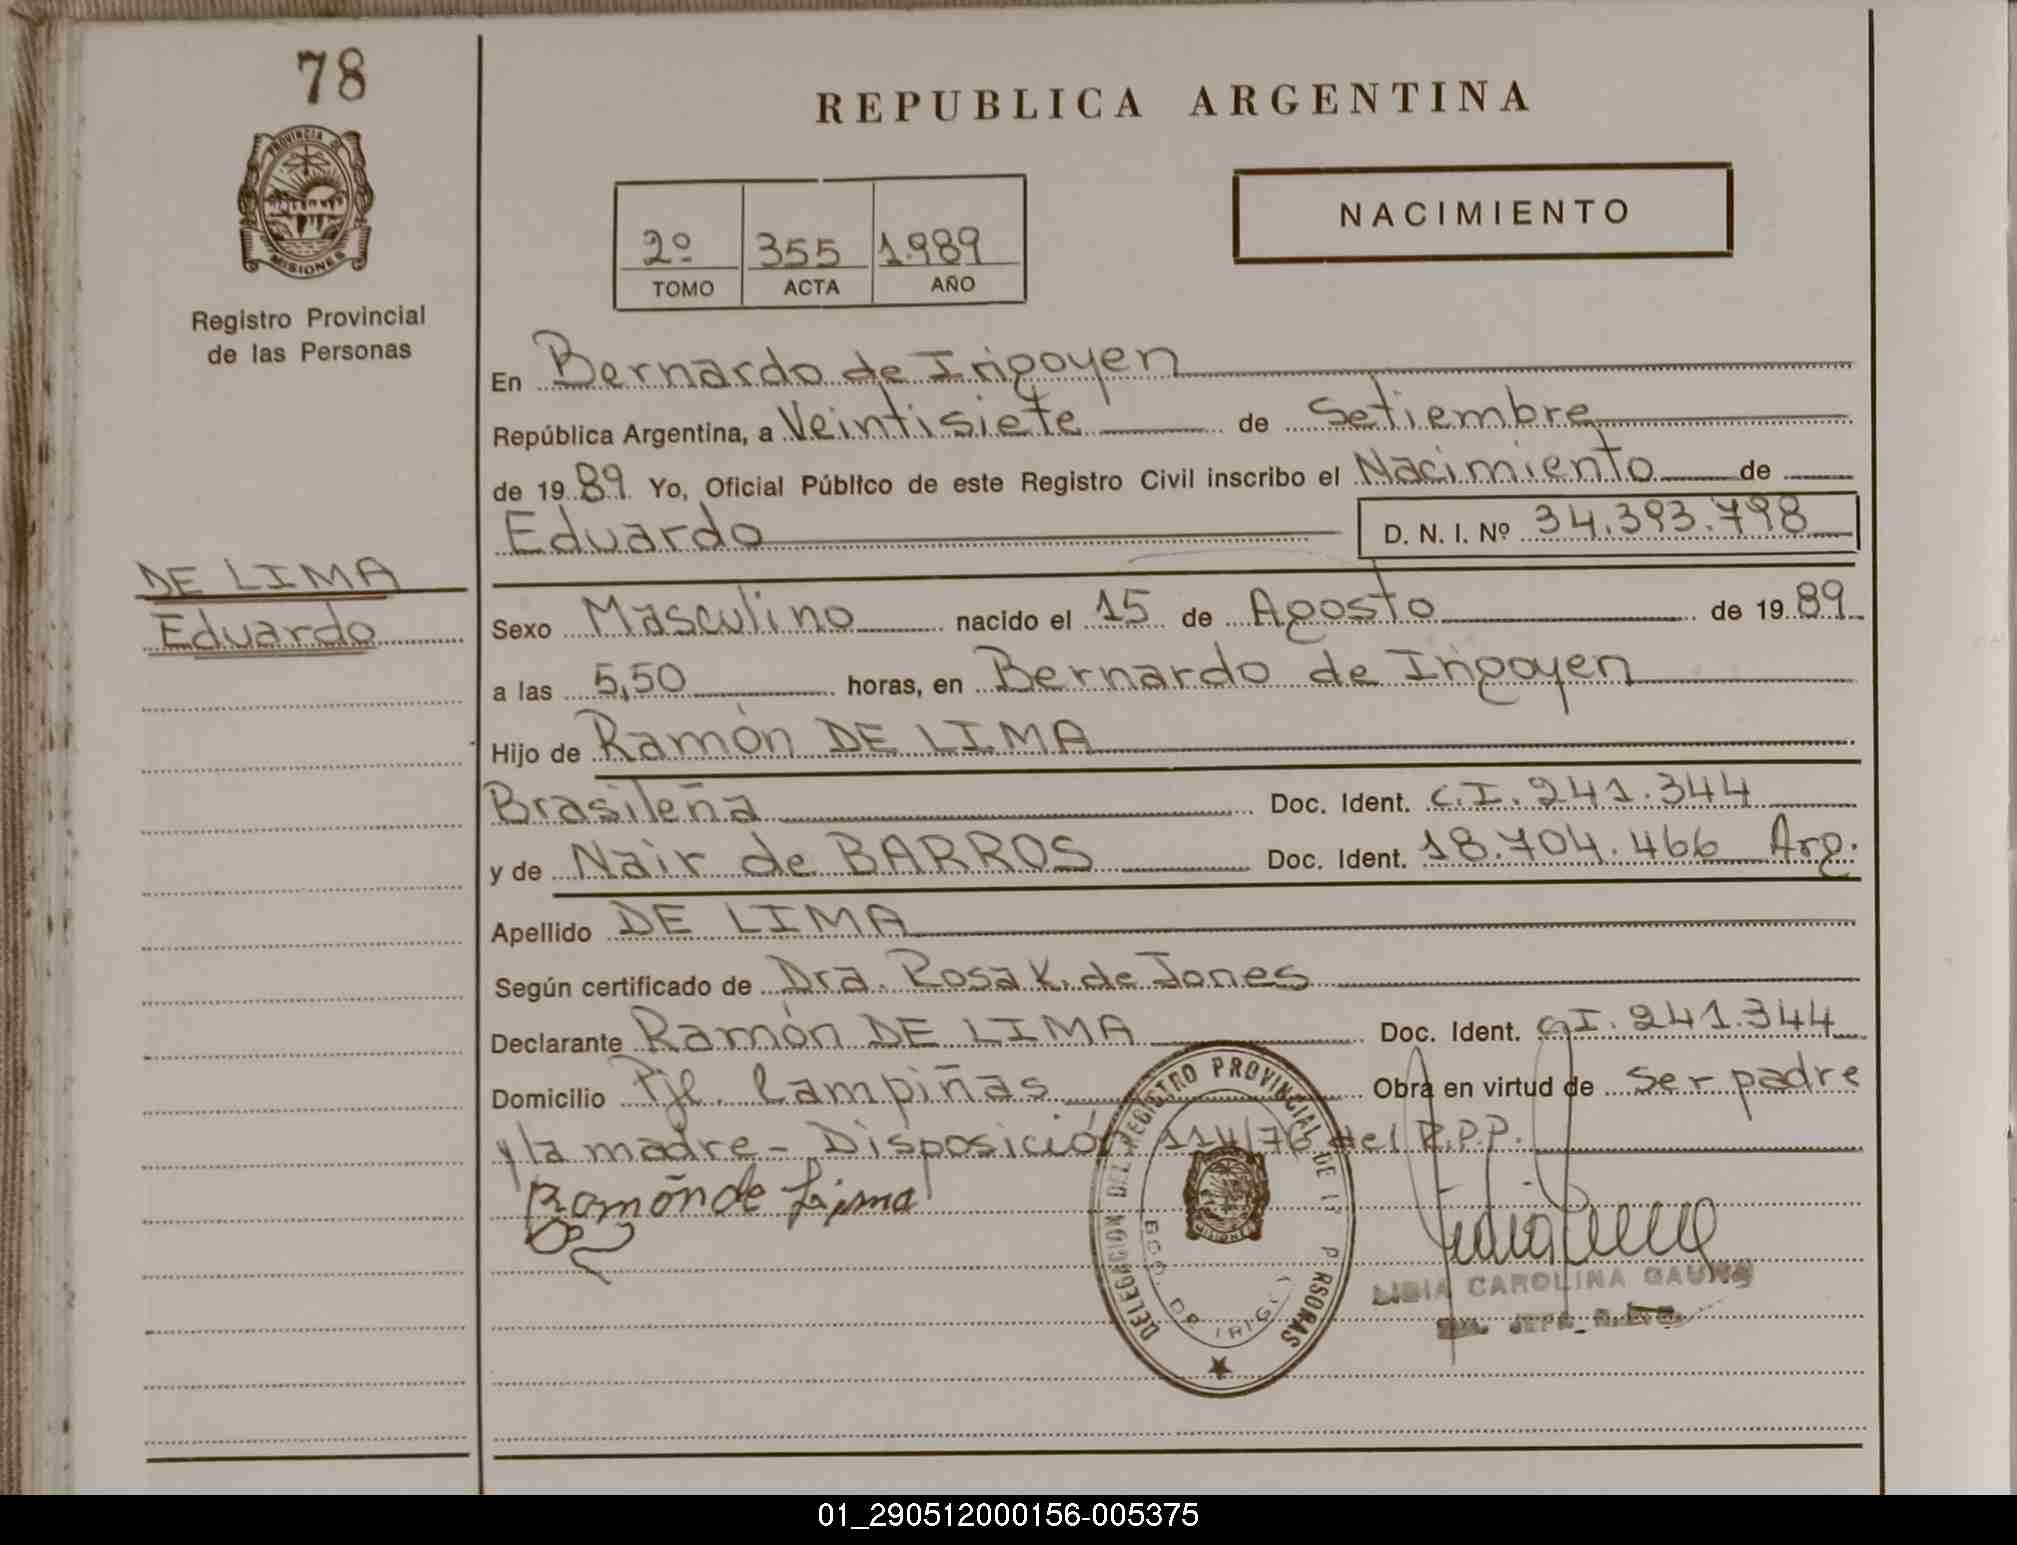 78
PROVINCIA DE
MISIONES
Registro Provincial
de las Personas
DE LIMA
Eduardo
REPUBLICA ARGENTINA
2º 355 1.989
TOMO ACTA AÑO
NACIMIENTO
En Bernardo de Irigoyen
República Argentina, a Veintisiete de Setiembre
de 1989 Yo, Oficial Público de este Registro Civil inscribo el Nacimiento de
Eduardo D. N. I. Nº 34.393.798
Sexo Masculino nacido el 15 de Agosto de 1989
a las 5,50 horas, en Bernardo de Irigoyen
Hijo de Ramón DE LIMA
Brasileña Doc. Ident. C.I. 241.344
y de Nair de BARROS Doc. Ident. 18.704.466 Arg.
Apellido DE LIMA
Según certificado de Dra. Rosa K. de Jones
Declarante Ramón DE LIMA Doc. Ident. C.I. 241.344
Domicilio Pje. Campiñas Obra en virtud de ser padre
y la madre - Disposición 114/76 del R.P.P.
Ramón de Lima
DELEGACION DEL REGISTRO PROVINCIAL DE
MISIONES
LIBIA CAROLINA GAUNA
01_290512000156-005375